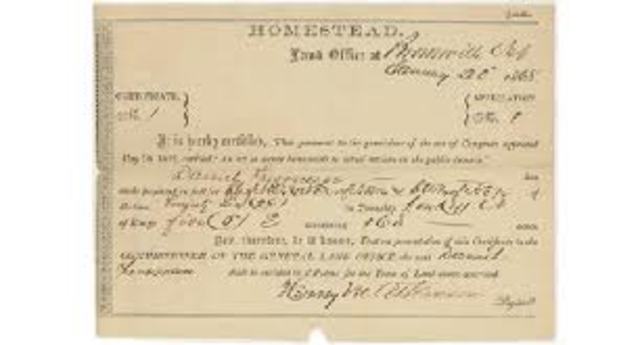 HOMESTEAD.
Land Office at Brownville
January 20 1868
CERTIFICATE, No. 1 } { APPLICATION, No. 1
It is hereby certified, That pursuant to the provisions of the act of Congress approved
May 20, 1862, entitled "An act to secure homesteads to actual settlers on the public domain,"
Daniel Freeman has
made payment in full for of
Section in Township four (4) N
of Range five (5) E containing 160 acres.
Now, therefore, be it known, That on presentation of this Certificate to the
COMMISSIONER OF THE GENERAL LAND OFFICE, the said Daniel
Freeman shall be entitled to a Patent for the Tract of Land above described.
Henry M. Atkinson
Register